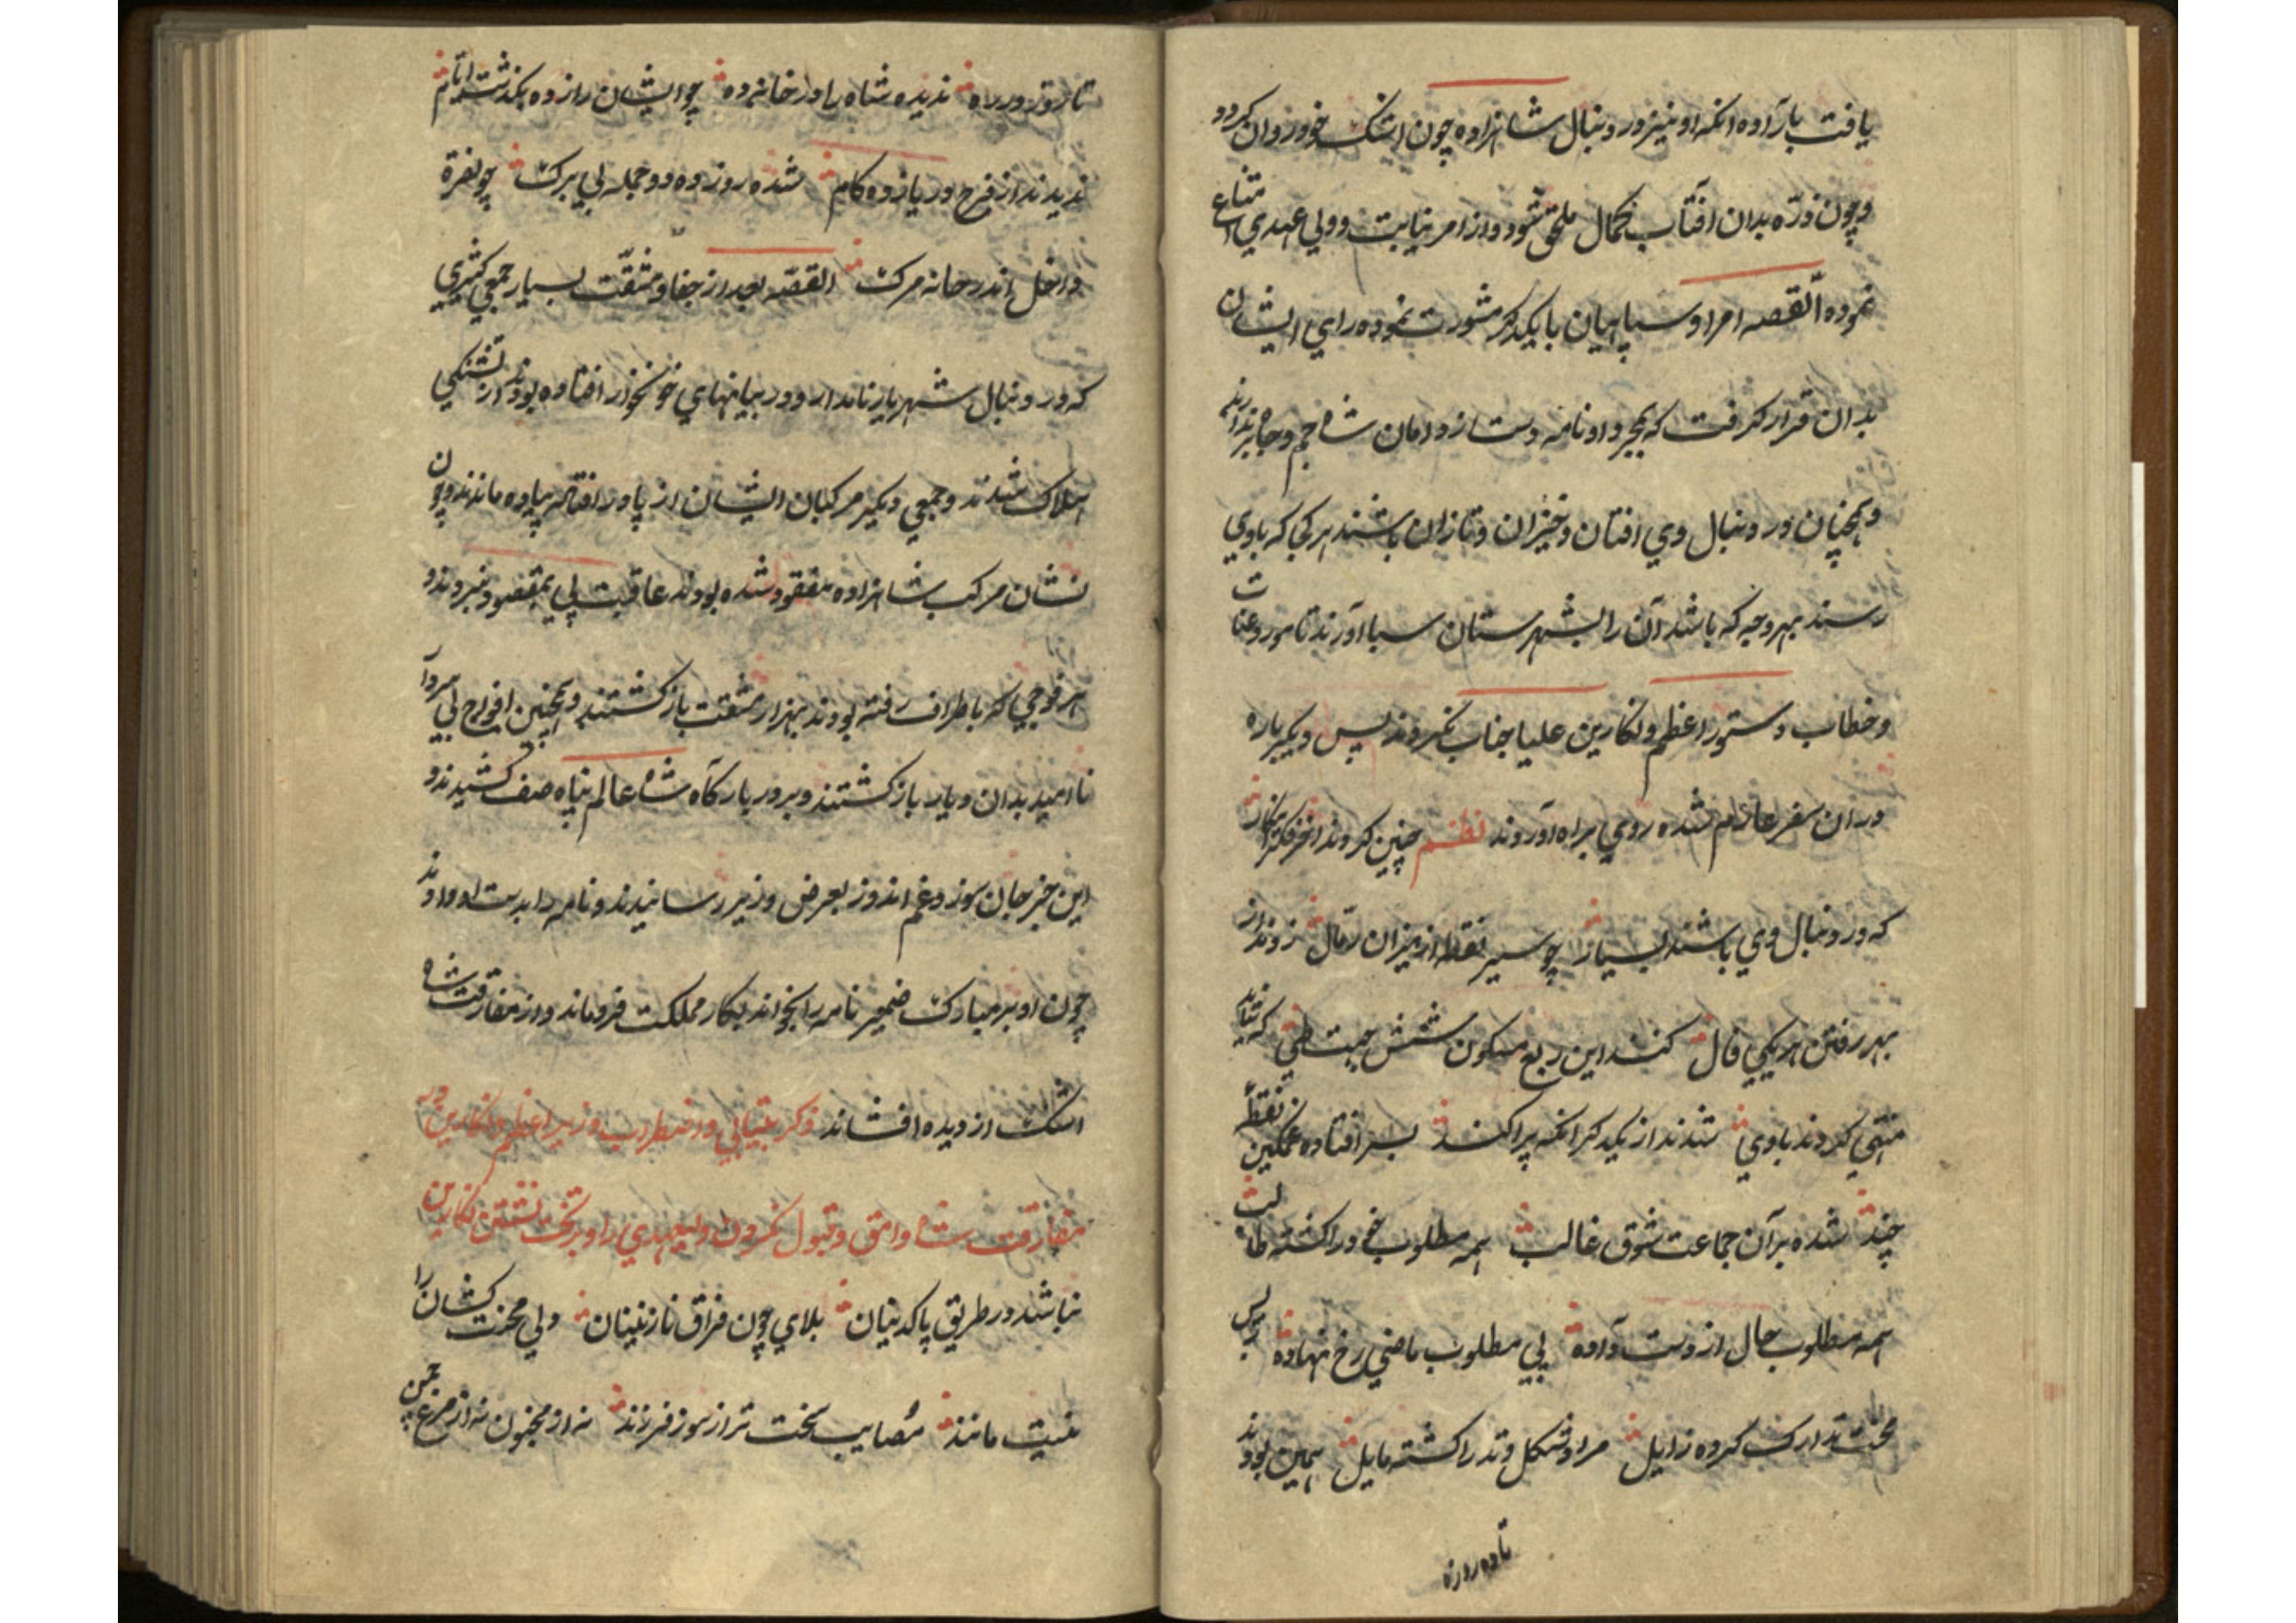 یافت بار آوه انکه او نیز در دنبال شاهزاده چون اشک خود روان کردد
و چون ذرّه بدان آفتاب کمال ملحق شود و از امر نیابت و ولی عهدي امتناع
نموده القصه امرا و سپاهیان با یکدکر مشورت نموده راي ایشان
بدان قرار کرفت که دست از دامان شاه جم جاه برندارند
و همچنان در دنبال وي افتان و خیزان و تازان باشند هر کجا که باوي
رسند بهر وجه که باشد آن را بشهرستان سبا آورند تا مورد عتاب
و خطاب دستور اعظم و نکارین علیا جناب نکردند پس دیکر باره
در ان سفر عازم شده روي براه آوردند نظم چنین کردند
که در دنبال وي باشند بسیار چو سیر نقطه از میزان رمّال زدند از
بهر رفتن هر یکي فال کنند این ربع مسکون شش جهت طي که شاید
منتهي کردند باوي شدند از یکدکر انکه پراکند بسر افتاده غمکین نقطهٔ
چند شده بر آن جماعت شوق غالب همه مطلوب خود را کشته طالب
همه مطلوب حال از دست داده پي مطلوب ماضي رخ نهاده
تدارک کرده زایل مراد شکل وتد را کشته مایل همین بودند
تا ده روزه
تا روز در راه ندیده شاه را در خانهٔ ده چو ایشان را ز ده بکذشت ایّام
ندیدند از فرح در یازده کام شده روز ده و دو جمله بي برک چو نفره
داخل اندر خانه مرک القصّه بعد از جفا و مشقّت بسیار جمعي کثیري
که در دنبال شهریار نامدار و در بیابانهاي خونخوار افتاده بودند از تشنکي
هلاک شدند و جمعي دیکر مرکبان ایشان از پا در افتاده پیاده ماندند و چون
نشان مرکب شاهزاده مفقود شده بودند عاقبت پي بمقصود نبردند و
هر فوجي که باطراف رفته بودند بهزار مشقت باز کشتند و همچنین افواج
نا امید بدان دیار باز کشتند و بر در بارکاه شاه عالم پناه صف کشیدند و
این خبر جان سوز و غم اندوز بعرض وزیر رسانیدند و نامه را بدست او دادند
چون او بر مبارک ضمیر نامه را بخواند بکار مملکت فرو ماند و از مفارقت شاه
اشک از دیده افشاند ذکر بیتابي و اضطراب وزیر اعظم و نکارین
مفارقت شاه وامق و قبول نکردن ولیعهدي را و بر تخت نشستن نکارین
نباشد در طریق پاکدینان بلاي چون فراق نازنینان ولي محنت کشان را
نیست مانند مصایب سخت تر از سوز فرزند نه از مجنون نه از مرغ چمن